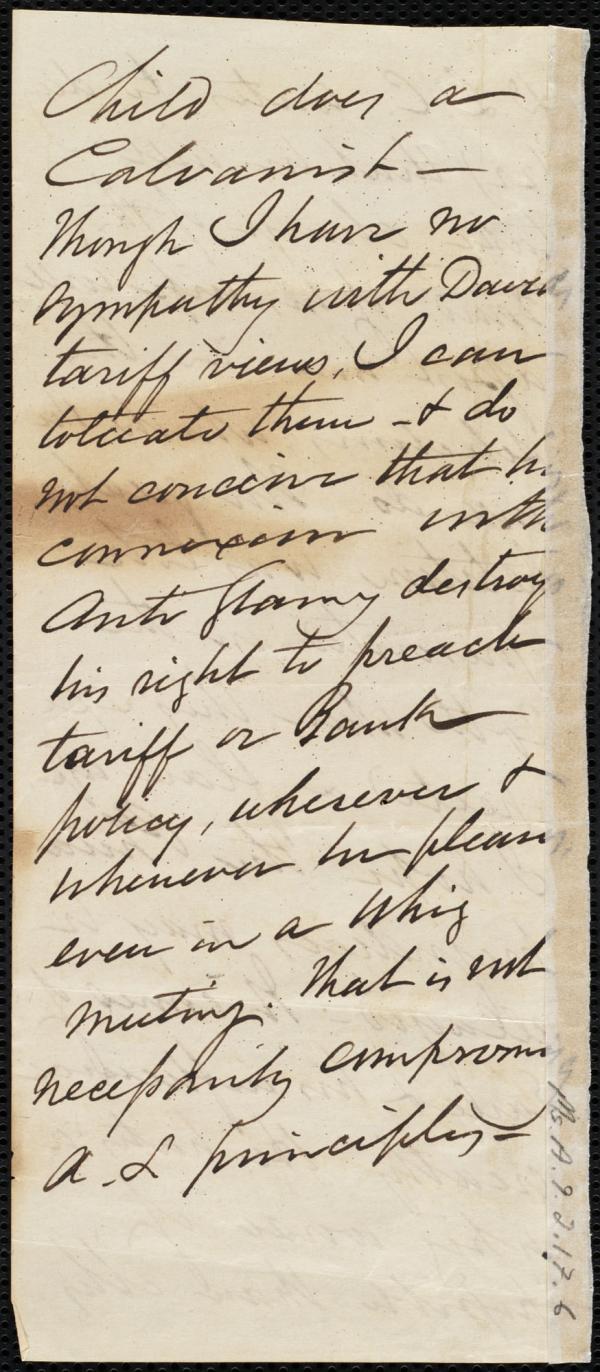 Child does a
Calvanist —
Though I have no
sympathy with Davids
tariff views, I can
tolerate them - & do
not conceive that his
connexion with
Anti Slavery destroys
his right to preach
tariff or Bank
policy, wherever &
whenever he please
even in a Whig
meeting. That is not
necessarily compromi
A. S. principles —
Ms.A.9.2.17.6